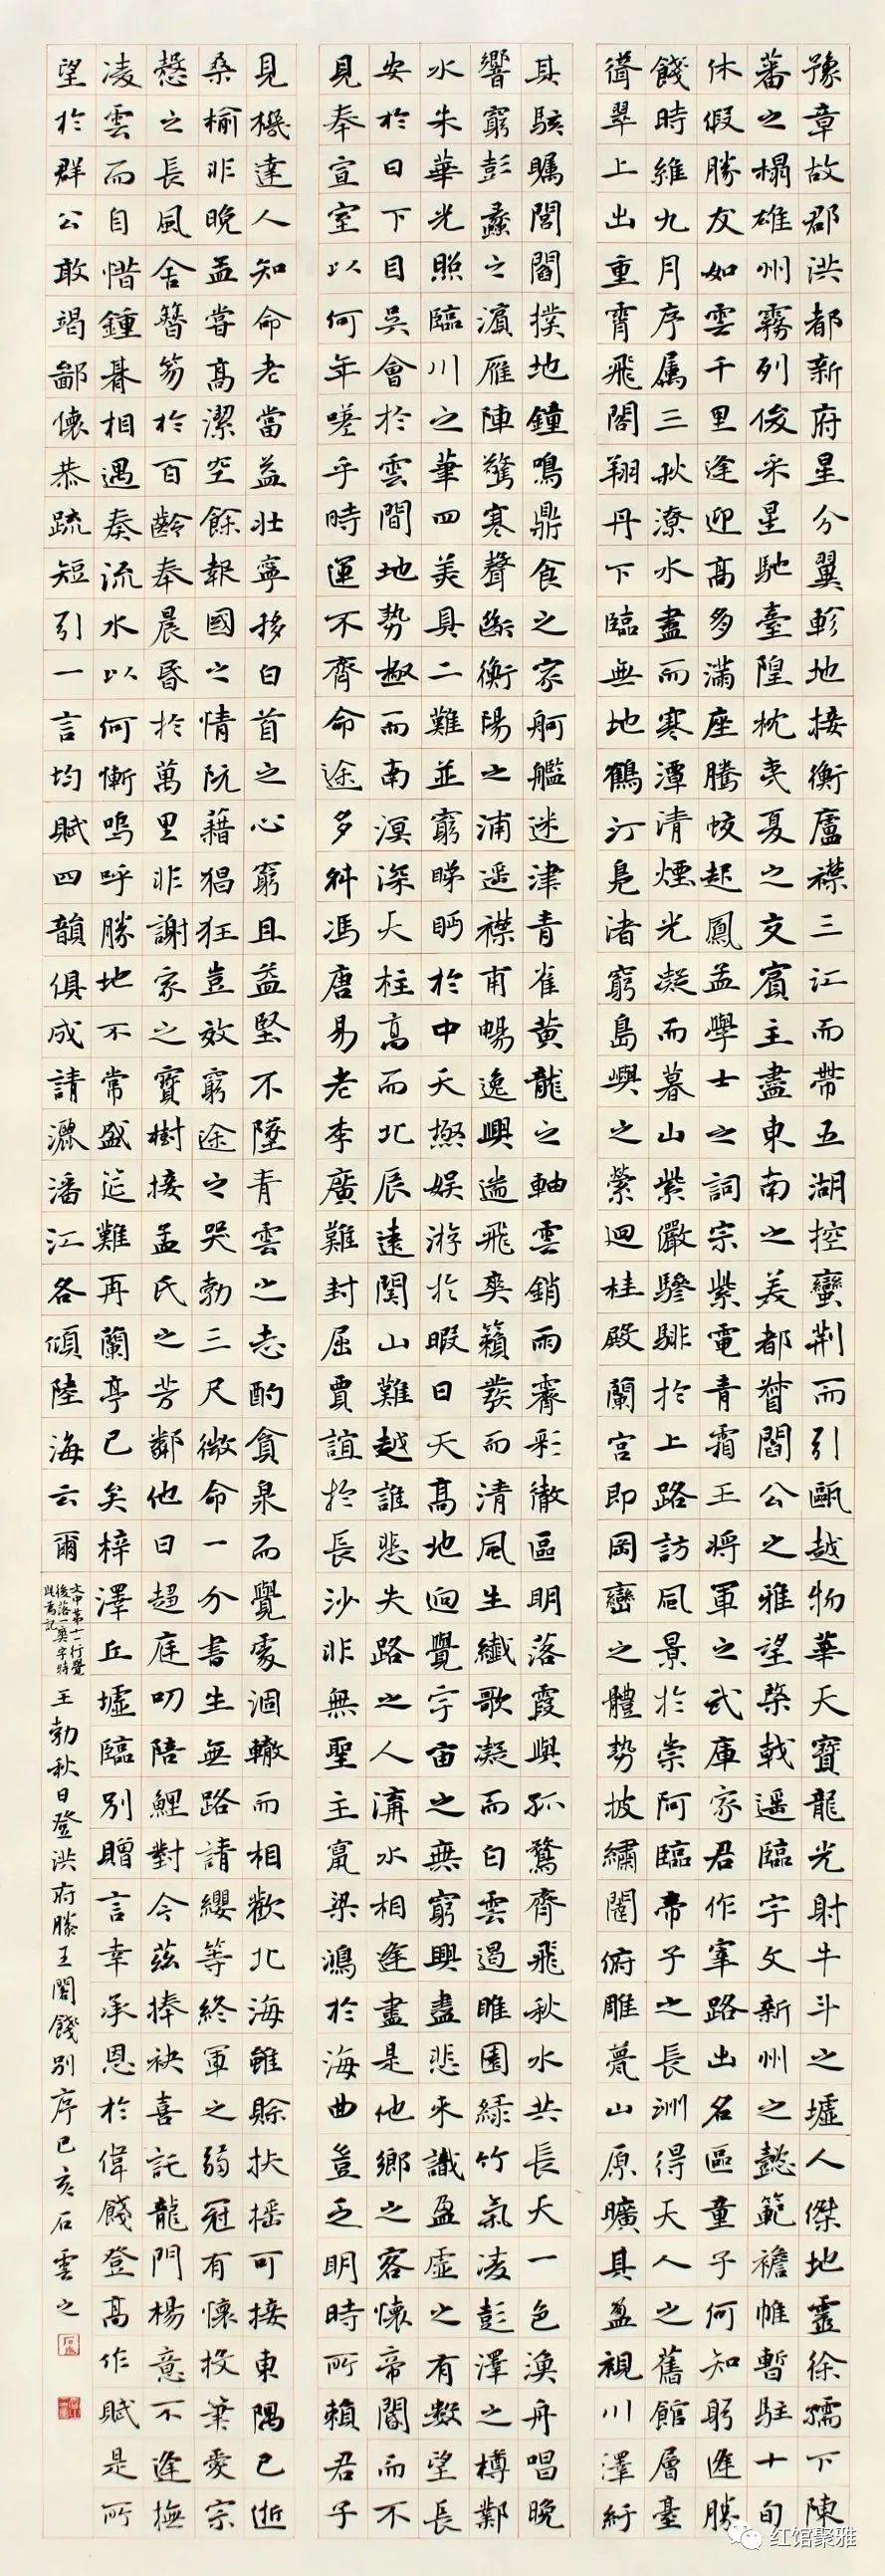 豫章故郡洪都新府星分翼軫地接衡廬襟三江而帶五湖控蠻荆而引甌越物華天寶龍光射牛斗之墟人傑地靈徐孺下陳
蕃之榻雄州霧列俊采星馳臺隍枕夷夏之交賓主盡東南之美都督閻公之雅望棨戟遥臨宇文新州之懿範襜帷暫駐十旬
休假勝友如雲千里逢迎高朋滿座騰蛟起鳳孟學士之詞宗紫電青霜王將軍之武庫家君作宰路出名區童子何知躬逢勝
餞時維九月序属三秋潦水盡而寒潭清煙光凝而暮山紫儼驂騑於上路訪風景於崇阿臨帝子之長洲得天人之舊館層臺
聳翠上出重霄飛閣翔丹下臨無地鶴汀鳧渚窮島嶼之縈迴桂殿蘭宫即岡巒之體勢披繡闥俯雕甍山原曠其盈視川澤紆
其駭矚閭閻撲地鐘鳴鼎食之家舸艦迷津青雀黄龍之軸雲銷雨霽彩徹區明落霞與孤鶩齊飛秋水共長天一色漁舟唱晚
響窮彭蠡之濱雁陣驚寒聲斷衡陽之浦遥襟甫暢逸興遄飛爽籟發而清風生纖歌凝而白雲遏睢園緑竹氣凌彭澤之樽鄴
水朱華光照臨川之筆四美具二難並窮睇眄於中天極娱游於暇日天高地迥覺宇宙之無窮興盡悲來識盈虚之有數望長
安於日下目吳會於雲間地勢極而南溟深天柱高而北辰遠關山難越誰悲失路之人溝水相逢盡是他鄉之客懷帝閽而不
見奉宣室以何年嗟乎時運不齊命途多舛馮唐易老李廣難封屈賈誼於長沙非無聖主竄梁鴻於海曲豈乏明時所賴君子
見機達人知命老當益壯寧移白首之心窮且益堅不墜青雲之志酌貪泉而覺處涸轍而相歡北海雖賒扶摇可接東隅已逝
桑榆非晚孟嘗高潔空餘報國之情阮藉猖狂豈效窮途之哭勃三尺微命一分書生無路請纓等終軍之弱冠有懷投筆愛宗
慤之長風舍簪笏於百齡奉晨昏於萬里非謝家之寶樹接孟氏之芳鄰他日趨庭叨陪鯉對今兹捧袂喜託龍門楊意不逢撫
凌雲而自惜鍾朞相遇奏流水以何慚嗚呼勝地不常盛筵難再蘭亭已矣梓澤丘墟臨別贈言幸承恩於偉餞登高作賦是所
望於群公敢竭鄙懷恭疏短引一言均賦四韻俱成請灑潘江各傾陸海云爾
文中第十一行覺
後落一爽字特
此為記
王勃秋日登洪府滕王閣餞別序己亥石雲之
红馆聚雅